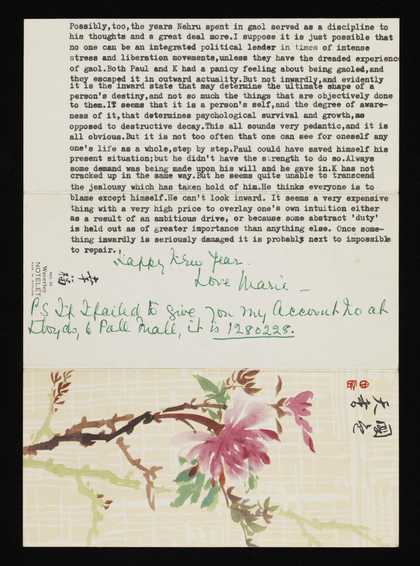 Possibly,too,the years Nehru spent in gaol served as a discipline to
his thoughts and a great deal more.I suppose it is just possible that
no one can be an integrated political leader in times of intense
stress and liberation movements,unless they have the dreaded experience
of gaol.Both Paul and K had a panicy feeling about being gaoled,and
they escaped it in outward actuality.But not inwardly,and evidently
it is the inward state that may determine the ultimate shape of a
person's destiny,and not so much the things that are objectively done
to them.IT seems that it is a person's self,and the degree of aware-
ness of it,that determines psychological survival and growth,as
opposed to destructive decay.This all sounds very pedantic,and it is
all obvious.But it is not too often that one can see for oneself any
one's life as a whole,step by step.Paul could have saved himself his
present situation;but he didn't have the strength to do so.Always
some demand was being made upon his will and he gave in.K has not
cracked up in the same way.But he seems quite unable to transcend
the jealousy which has taken hold of him.He thinks everyone is to
blame except himself.He can't look inward. It seems a very expensive
thing with a very high price to overlay one's own intuition either
as a result of an ambitious drive, or because some abstract 'duty'
is held out as of greater importance than anything else. Once some-
thing inwardly is seriously damaged it is probably next to impossible
to repair.
Happy New Year.
Love Marie -
PS If I failed to give you my Account No at
Lloyds, 6 Pall Mall, it is 1280228.
Waverley
NOTELET